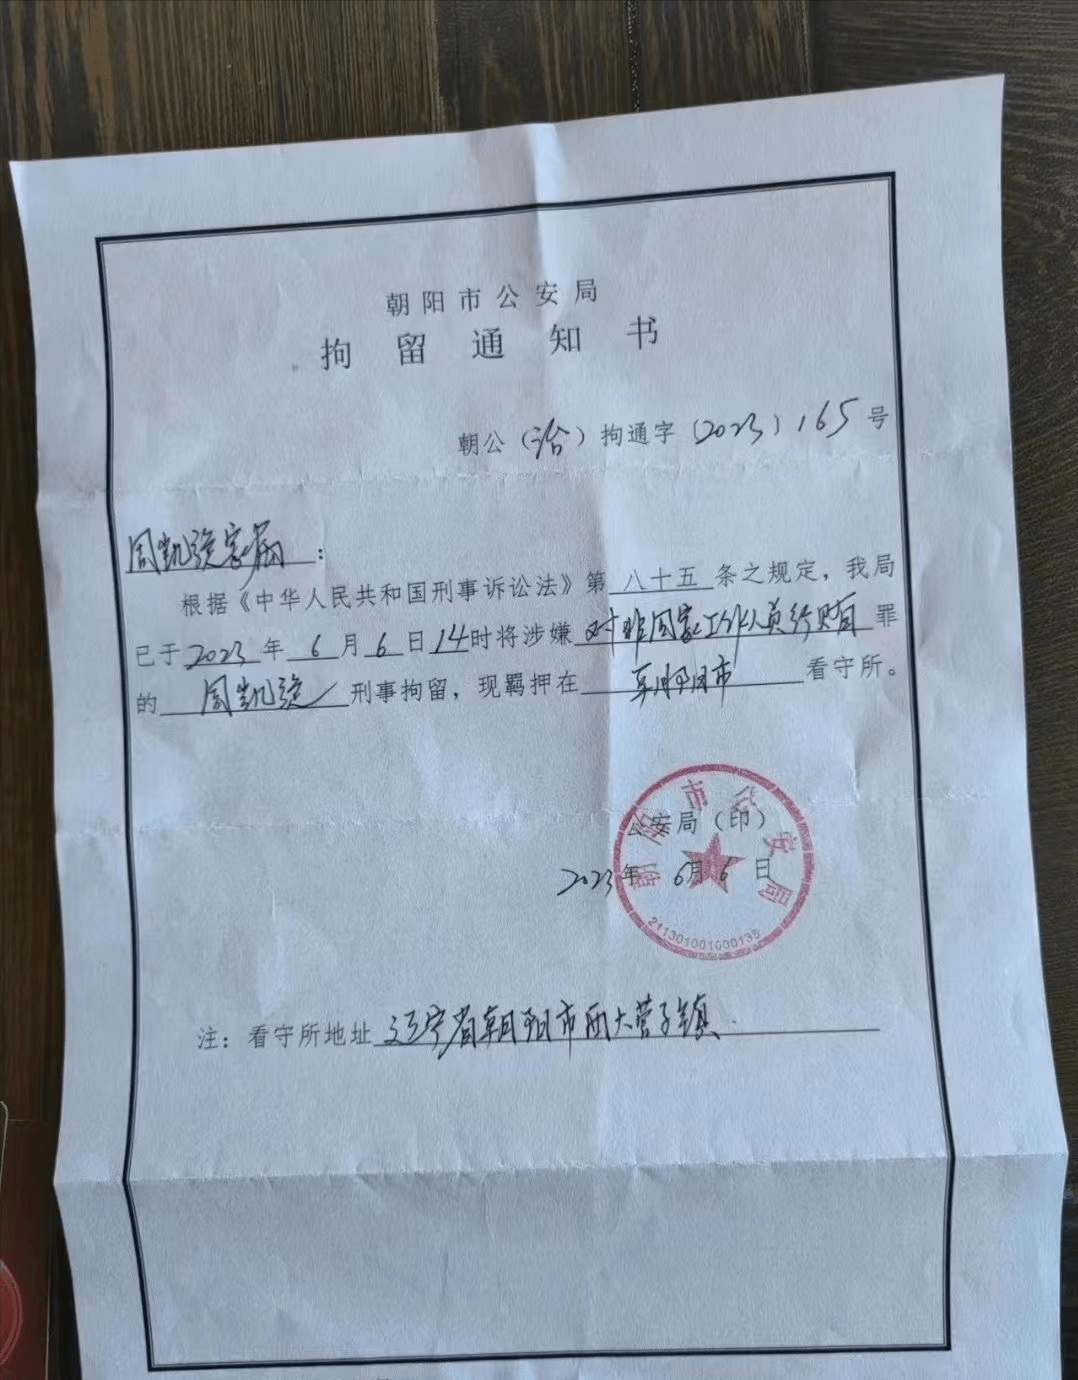 朝阳市公安局
拘留通知书
朝公（治）拘通字（2023）165号
周凯旋家属：
根据《中华人民共和国刑事诉讼法》第八十五条之规定，我局
已于2023年6月6日14时将涉嫌对非国家工作人员行贿罪
的周凯旋刑事拘留，现羁押在朝阳市看守所。
朝阳市公安局
公安局（印）
2023年6月6日
211301001000135
注：看守所地址辽宁省朝阳市西大营子镇